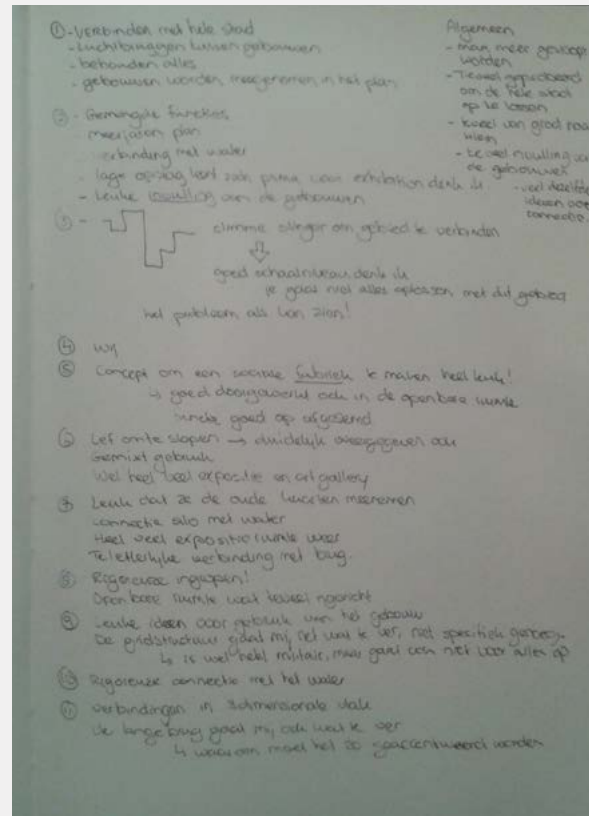 ① - Verbinden met hele stad
- Luchtbruggen tussen gebouwen
- behouden alles
- gebouwen worden meegenomen in het plan
② - Gemengde functies
meerjaren plan
verbinding met water
- lage opslag leent zich prima voor exhibition denk ik.
- Leuke invulling van de gebouwen
③ - slimme slinger om gebied te verbinden
goed schaalniveau denk ik
je gaat niet alles oplossen met dit gebied
het probleem als van Zion!
④ wij
⑤ Concept om een sociale fabriek te maken heel leuk!
↳ goed doorgewerkt ook in de openbare ruimte
goed op
⑥ Lef om te slopen → duidelijk aangegeven ook
Gemixt gebruik
Wel heel veel expositie en art gallery
⑦ Leuk dat ze de oude meenemen
connectie silo met water
Heel veel expositie ruimte weer
Te letterlijke verbinding met brug.
⑧ Rigoreuze ingrepen!
Openbare ruimte wat teveel ingericht
⑨ Leuke ideeën voor gebruik van het gebouw
De gridstructuur gaat mij net wat te ver, niet specifiek genoeg.
↳ is wel heel militair, maar gaat ook niet voor alles op
⑩ Rigoreuze connectie met het water
⑪ Verbindingen in 3dimensionale vlak
De lange brug gaat mij ook wat te ver
↳ waarom moet het zo geaccentueerd worden
Algemeen
- mag meer gesloopt
worden
- Teveel geprobeerd
om de hele stad
op te lossen
- teveel van groot naar
klein
- te veel invulling van
de gebouwen
- veel dezelfde
ideeen over
connectie.